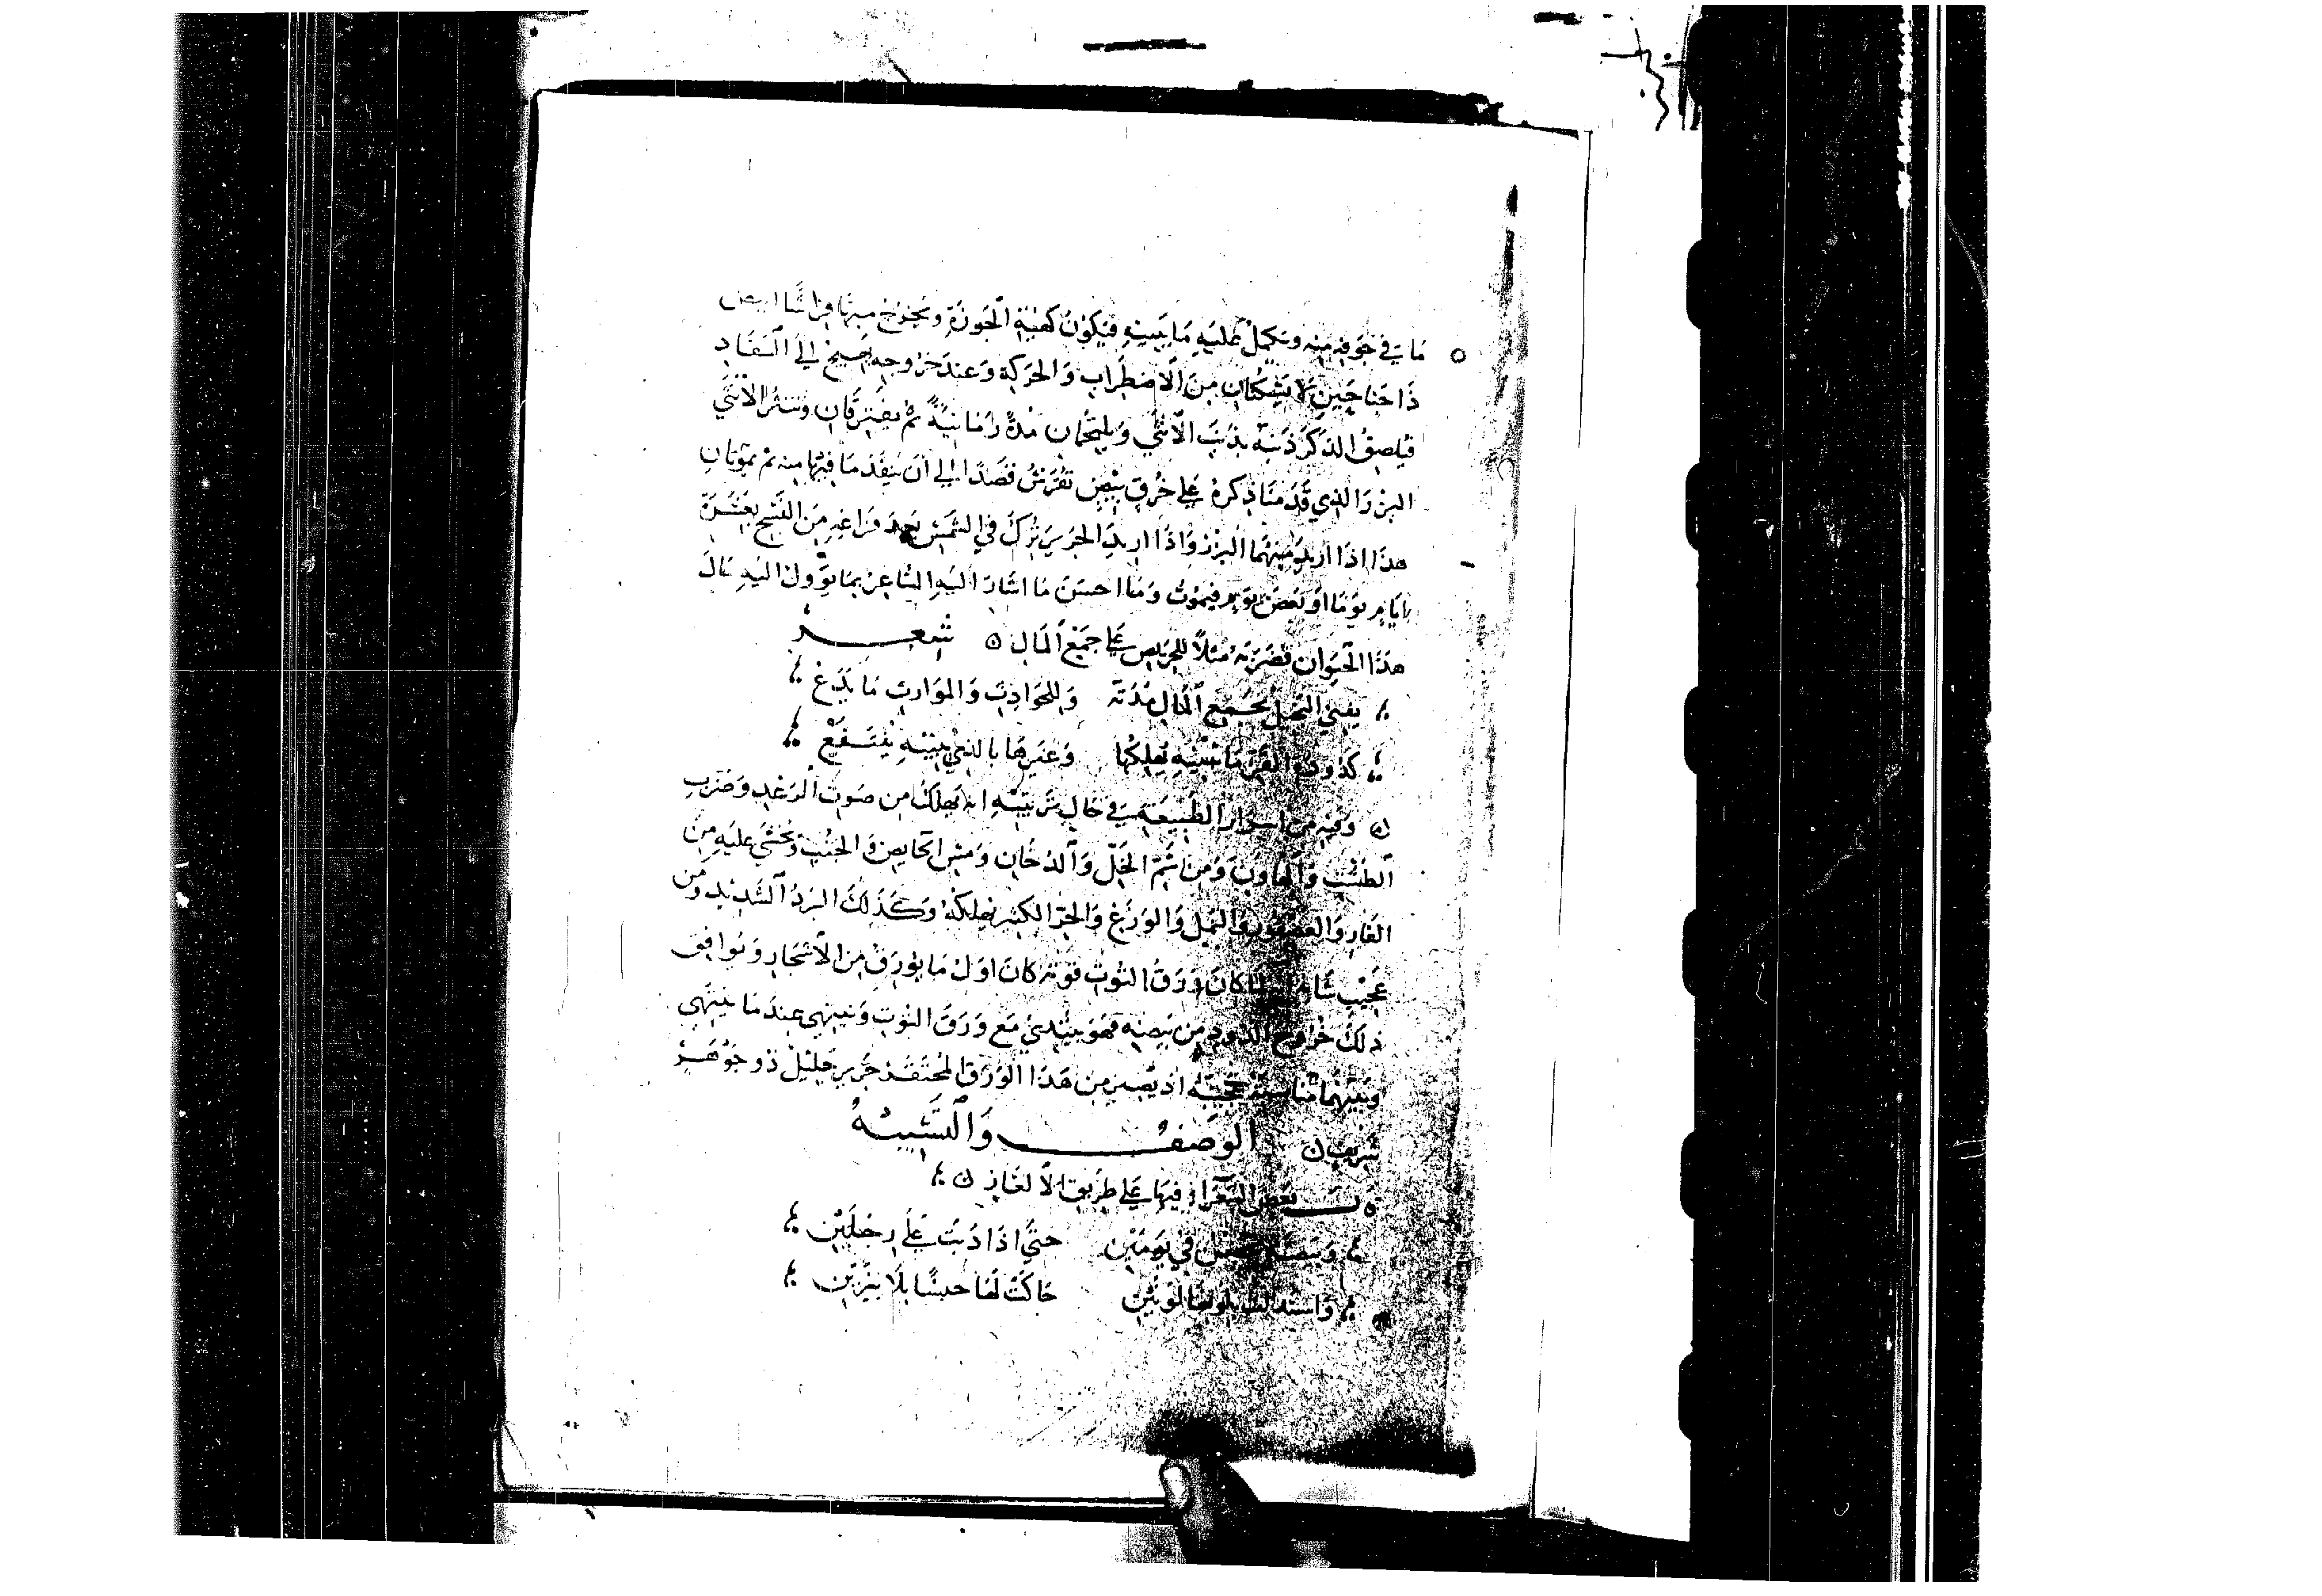 ما في جوفه منه ويكمل عليه ما يبنيه فيكون كهيئة الجوزة ويخرج منها فراشا ابيض
ذا جناحين لا يسكنان من الاضطراب والحركة وعند خروجه يهيج الي السفاد
فيلصق الذكر ذنبه بذنب الانثي ويلتحمان مدة زمانية ثم يفترقان وتنثر الانثي
البزر الذي قدمنا ذكره علي خرق بيض تفرش قصدا الي ان ينفد ما فيها منه ثم يموتان
هذا اذا اريد منهما البزر واذا اريد الحرير ترك في الشمس بعد فراغه من النسج بعشرة
ايام يوما او بعض يوم فيموت وما احسن ما اشار اليه الشاعر بما يؤول اليه حال
هذا الحيوان فضربه مثلا للحريص علي جمع المال ٥ شعر
يفني البخيل بجمع المال مدته وللحوادث والموارث ما يدع
كدودة القز ما تبنيه يهلكها وغيرها بالذي تبنيه ينتفع
٥ وفيه من اسرار الطبيعة في حال تربيته انه يهلك من صوت الرعد وضرب
الطشت والهاون ومن شم الخل والدخان ومس الحايض والجنب ويخشي عليه من
الفار والعصفور والنمل والوزغ والحر الكثير يهلكه وكذلك البرد الشديد ومن
عجيب شانه لما كان ورق التوت قوته كان اول ما يورق من الاشجار ويوافق
ذلك خروج الدود من بيضه فهو يبتدي مع ورق التوت وينتهي عند ما ينتهي
وبينهما مناسبة عجيبة اذ يصير من هذا الورق المحتقر حرير جليل ذو جوهر
شريف ٥ الوصف والتشبيه
بعض الشعراء فيها علي طريق الالغاز ٥
وبيضة تحضن في يومين حتي اذا دبت علي رجلين
واستبدلت بلونها لونين حاكت لها حبسا بلا نيرين